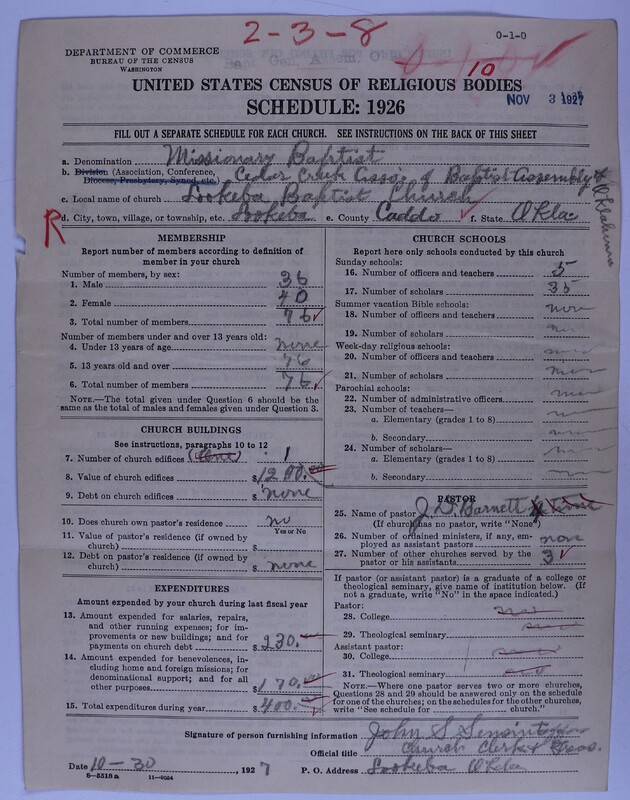 2-3-8
0-1-0
DEPARTMENT OF COMMERCE
BUREAU OF THE CENSUS
WASHINGTON
10
UNITED STATES CENSUS OF RELIGIOUS BODIES
NOV 3 1927
SCHEDULE: 1926
FILL OUT A SEPARATE SCHEDULE FOR EACH CHURCH. SEE INSTRUCTIONS ON THE BACK OF THIS SHEET
a. Denomination Missionary Baptist
b. Division (Association, Conference, Diocese, Presbytery, Synod, etc.) Cedar Creek Assoc of Baptist Assembly of Oklahoma
c. Local name of church Lookeba Baptist Church
R
d. City, town, village, or township, etc. Lookeba e. County Caddo f. State Okla
MEMBERSHIP
Report number of members according to definition of
member in your church
Number of members, by sex:
1. Male 36
2. Female 40
3. Total number of members 76
Number of members under and over 13 years old:
4. Under 13 years of age none
5. 13 years old and over 76
6. Total number of members 76
NOTE.—The total given under Question 6 should be
the same as the total of males and females given under Question 3.
CHURCH BUILDINGS
See instructions, paragraphs 10 to 12
7. Number of church edifices (One) 1
8. Value of church edifices $1200.00
9. Debt on church edifices $ none
10. Does church own pastor's residence no
Yes or No
11. Value of pastor's residence (if owned by
church) $
12. Debt on pastor's residence (if owned by
church) $ none
EXPENDITURES
Amount expended by your church during last fiscal year
13. Amount expended for salaries, repairs,
and other running expenses; for im-
provements or new buildings; and for
payments on church debt $230.
14. Amount expended for benevolences, in-
cluding home and foreign missions; for
denominational support; and for all
other purposes $170.
15. Total expenditures during year $400.
CHURCH SCHOOLS
Report here only schools conducted by this church
Sunday schools:
16. Number of officers and teachers 5
17. Number of scholars 35
Summer vacation Bible schools:
18. Number of officers and teachers none
19. Number of scholars
Week-day religious schools:
20. Number of officers and teachers
21. Number of scholars
Parochial schools:
22. Number of administrative officers
23. Number of teachers—
a. Elementary (grades 1 to 8)
b. Secondary
24. Number of scholars—
a. Elementary (grades 1 to 8)
b. Secondary
PASTOR
25. Name of pastor J. D. Barnett
(If church has no pastor, write "None")
26. Number of ordained ministers, if any, em-
ployed as assistant pastors none
27. Number of other churches served by the
pastor or his assistants 3
If pastor (or assistant pastor) is a graduate of a college or
theological seminary, give name of institution below. (If
not a graduate, write "No" in the space indicated.)
Pastor:
28. College no
29. Theological seminary
Assistant pastor:
30. College
31. Theological seminary
NOTE.—Where one pastor serves two or more churches,
Questions 28 and 29 should be answered only on the schedule
for one of the churches; on the schedules for the other churches,
write "See schedule for church."
Signature of person furnishing information John S.
Official title Church Clerk & Treas.
Date 10-30, 1927 P. O. Address Lookeba Okla
8—5518 a 11—9054